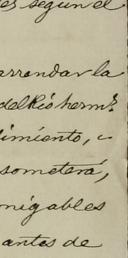 es segun el
arrendar la
del Rio herms
dimiento, i
someterá,
migables
antes de